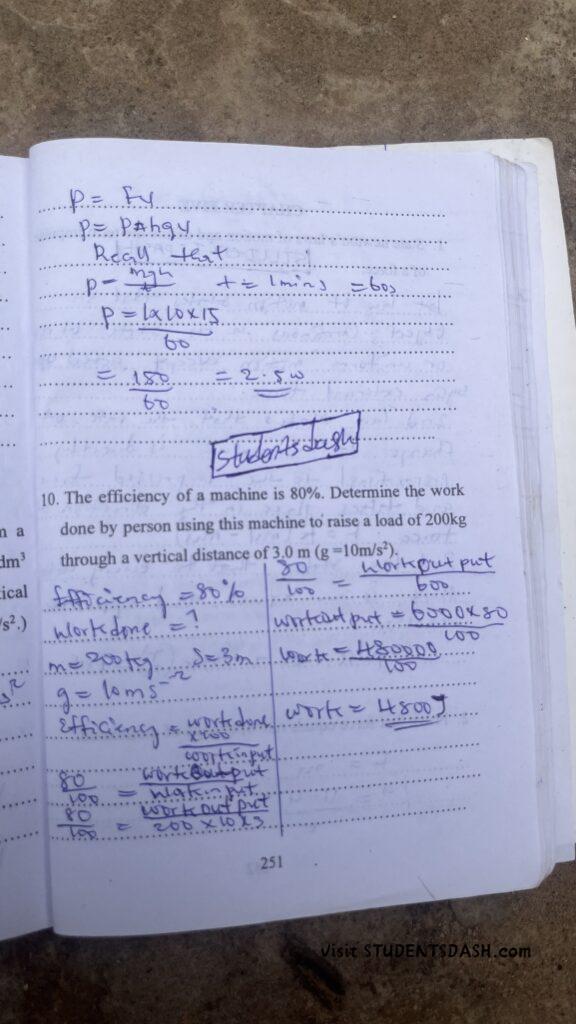 P = Fv
P = PAhgv
Recall that
P = mgh/t t = 1mins = 60s
P = 1x10x15
60
= 150 = 2.5w
60
Studentsdash
10. The efficiency of a machine is 80%. Determine the work
done by person using this machine to raise a load of 200kg
through a vertical distance of 3.0 m (g =10m/s²).
n a
dm³
ical
/s².)
Efficiency = 80%
Workdone = ?
m = 200kg s = 3m
g = 10ms⁻²
Efficiency = workdone
x100
workinput
80 = workoutput
100 workinput
80 = workoutput
100 200 x 10 x 3
80 = workoutput
100 600
workoutput = 6000x80
100
work = 480000
100
work = 4800J
251
Visit STUDENTSDASH.com